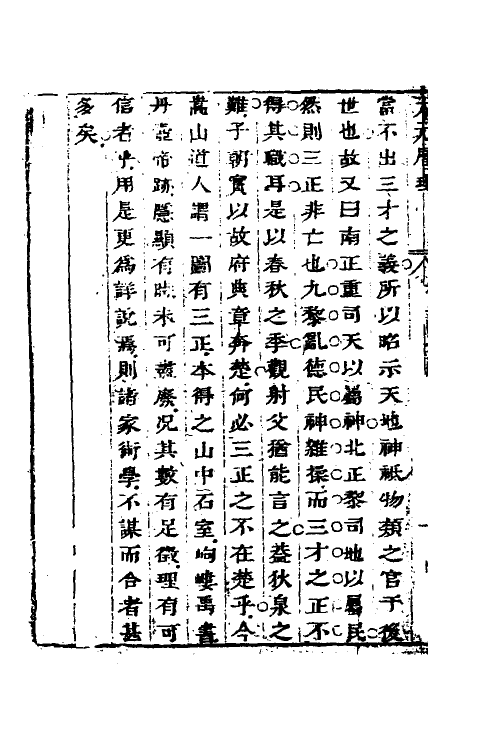 當不出三才之義所以昭示天地神祇物類之官于後
世也故又曰南正重司天以屬神北正黎司地以屬民
然則三正非亡也九黎亂德民神雜揉而三才之正不
得其職耳是以春秋之季觀射父猶能言之蓋狄泉之
難子朝實以故府典章奔楚何必三正之不在楚乎今
嵩山道人謂一圖有三正本得之山中石室岣嶁禹書
丹壺帝跡隱顯有時未可盡廢況其數有足徵理有可
信者乎用是更為詳說焉則諸家術學不謀而合者甚
多矣